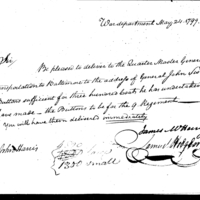 War department May 24. 1799.
Sir,
Be pleased to deliver to the Quarter Master General
transportation to Baltimore to the address of General John
Buttons sufficient for three hundred coats he has undertaken
made — the Buttons to be for the 9. Regiment
you will have them delivered immediately
James McHenry
Samuel Hodgdon
John Harris
small